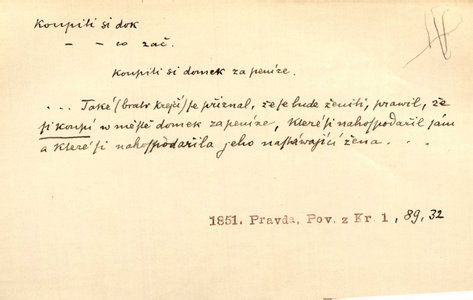 Koupiti si dok
– – co zač.
Koupiti si domek za peníze.
... Také (bratr krejčí) se přiznal, že se bude ženiti, pravil, že
si koupí w městě domek za peníze, které si nahospodařil sám
a které si nahospodařila jeho nastávající žena. . .
1851. Pravda, Pov. z Kr. 1, 89, 32